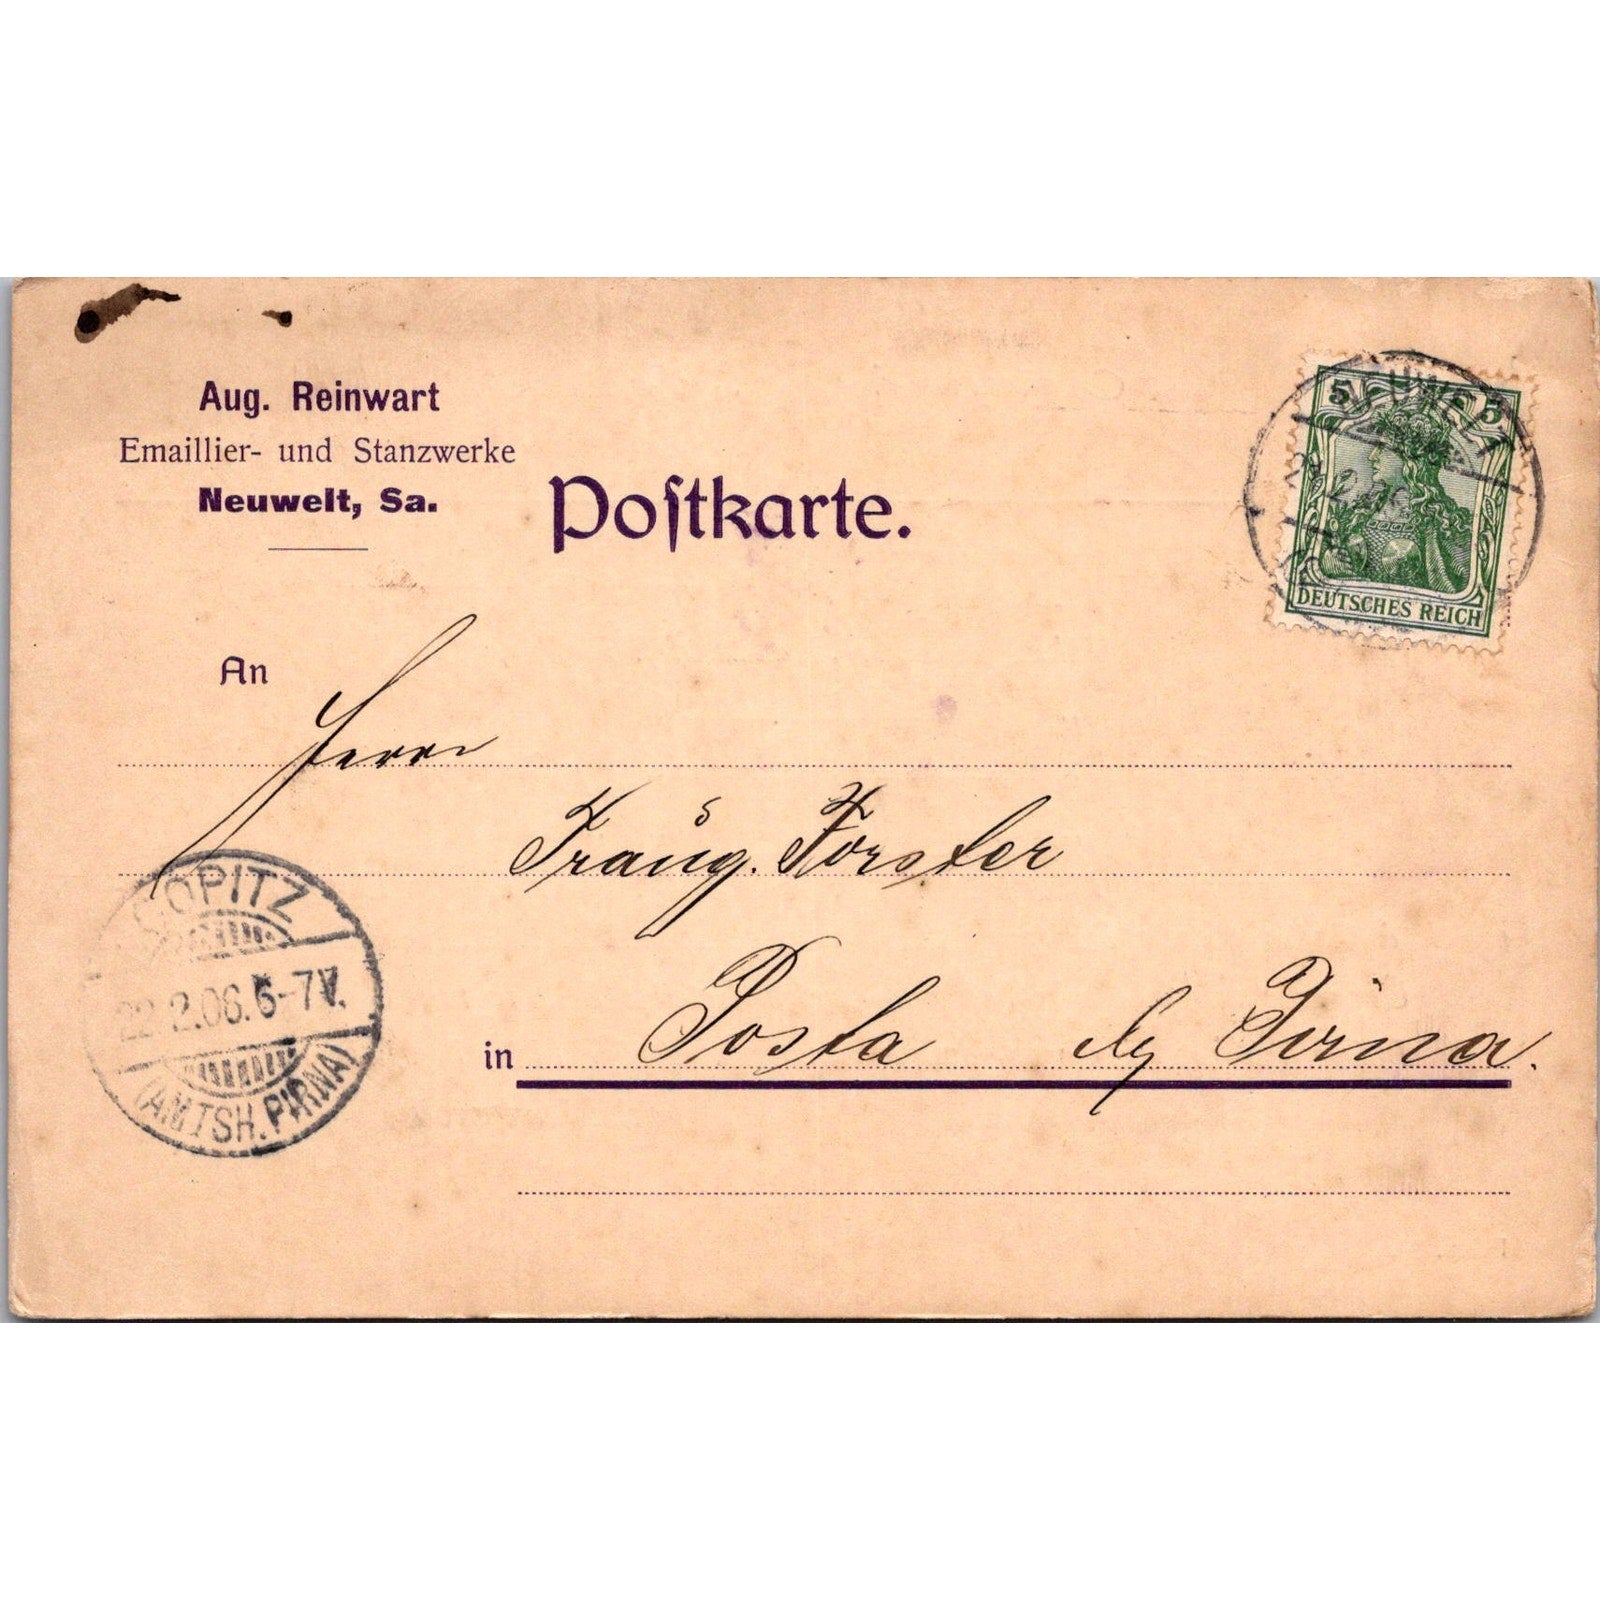 Aug. Reinwart
Emaillier- und Stanzwerke
Neuwelt, Sa.
Poſtkarte.
5 5
DEUTSCHES REICH
An
Herrn
Traug. Förster
in Posta b/ Pirna.
COPITZ
22.2.06. 6-7V.
(AMTSH. PIRNA)